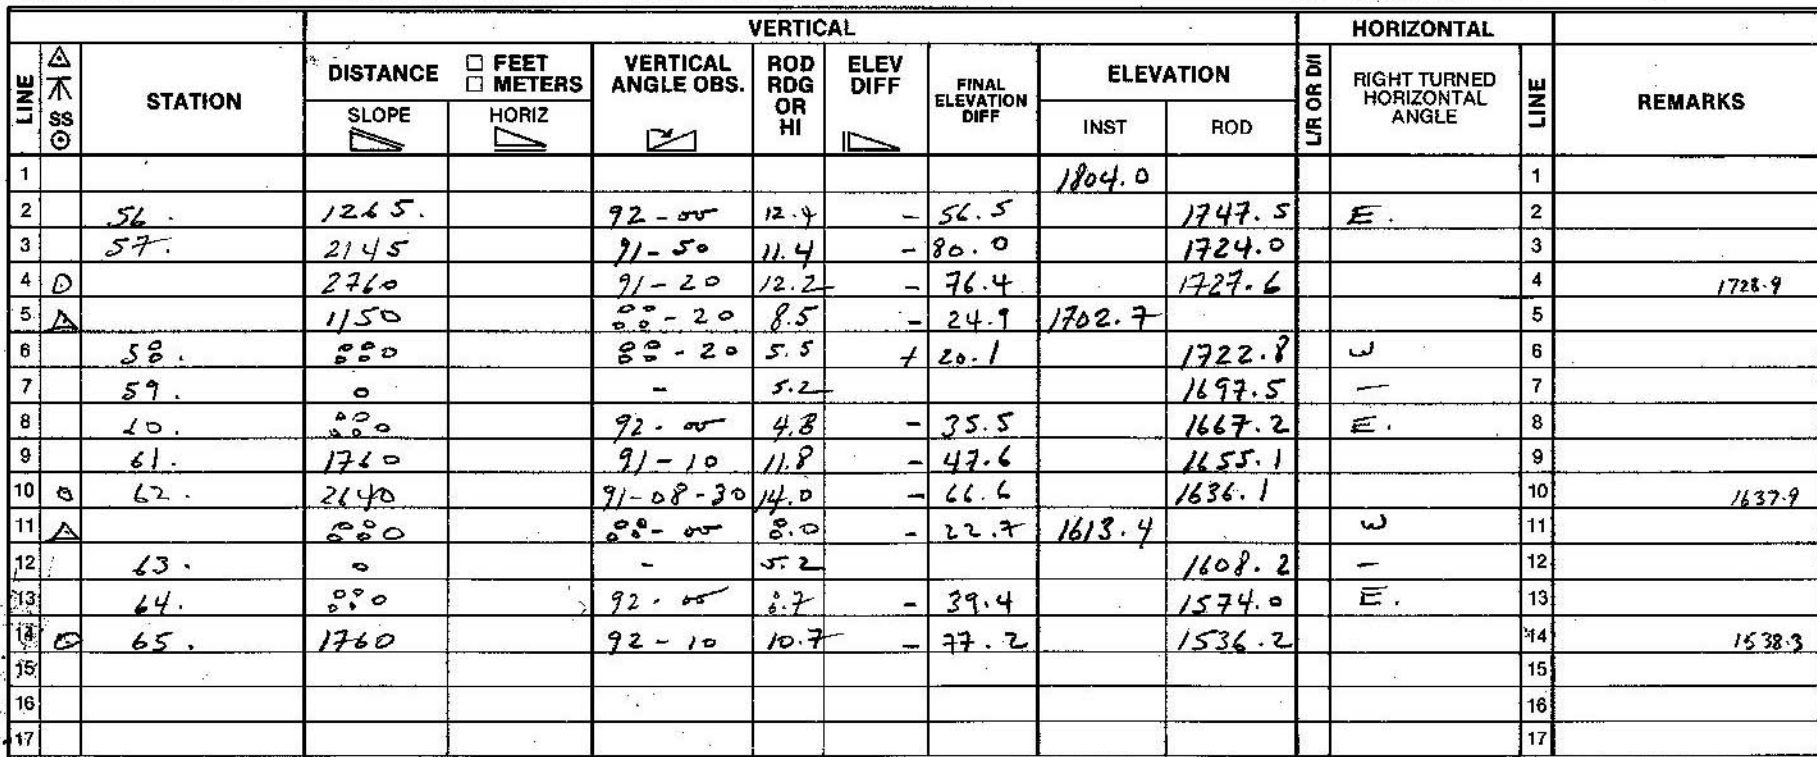 VERTICAL HORIZONTAL
LINE △ ⊼ SS ⊙ STATION DISTANCE □ FEET □ METERS SLOPE HORIZ VERTICAL ANGLE OBS. ROD RDG OR HI ELEV DIFF FINAL ELEVATION DIFF ELEVATION INST ROD L/R OR D/I RIGHT TURNED HORIZONTAL ANGLE LINE REMARKS
1 1804.0 1
2 56. 1265. 92-00 12.4 - 56.5 1747.5 E. 2
3 57. 2145 91-50 11.4 - 80.0 1724.0 3
4 ⊙ 2760 91-20 12.2 - 76.4 1727.6 4 1728.9
5 △ 1150 88-20 8.5 - 24.9 1702.7 5
6 58. 880 88-20 5.5 + 20.1 1722.8 W 6
7 59. 0 - 5.2 1697.5 — 7
8 60. 880 92-00 4.8 - 35.5 1667.2 E. 8
9 61. 1760 91-10 11.8 - 47.6 1655.1 9
10 ⊙ 62. 2640 91-08-30 14.0 - 66.6 1636.1 10 1637.9
11 △ 880 88-00 8.0 - 22.7 1613.4 W 11
12 63. 0 - 5.2 1608.2 — 12
13 64. 880 92-00 8.7 - 39.4 1574.0 E. 13
14 ⊙ 65. 1760 92-10 10.7 - 77.2 1536.2 14 1538.3
15 15
16 16
17 17